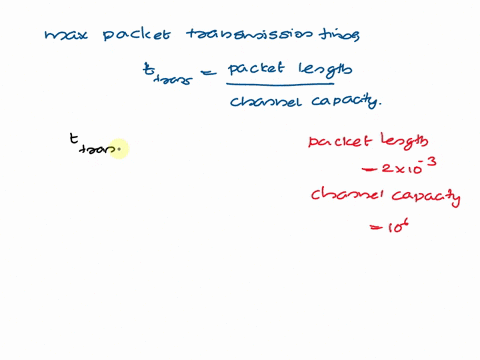 max packet transmission time,
t trans = packet length
channel capacity.
t trans.
packet length
= 2x10^-3
channel capacity
= 10^6